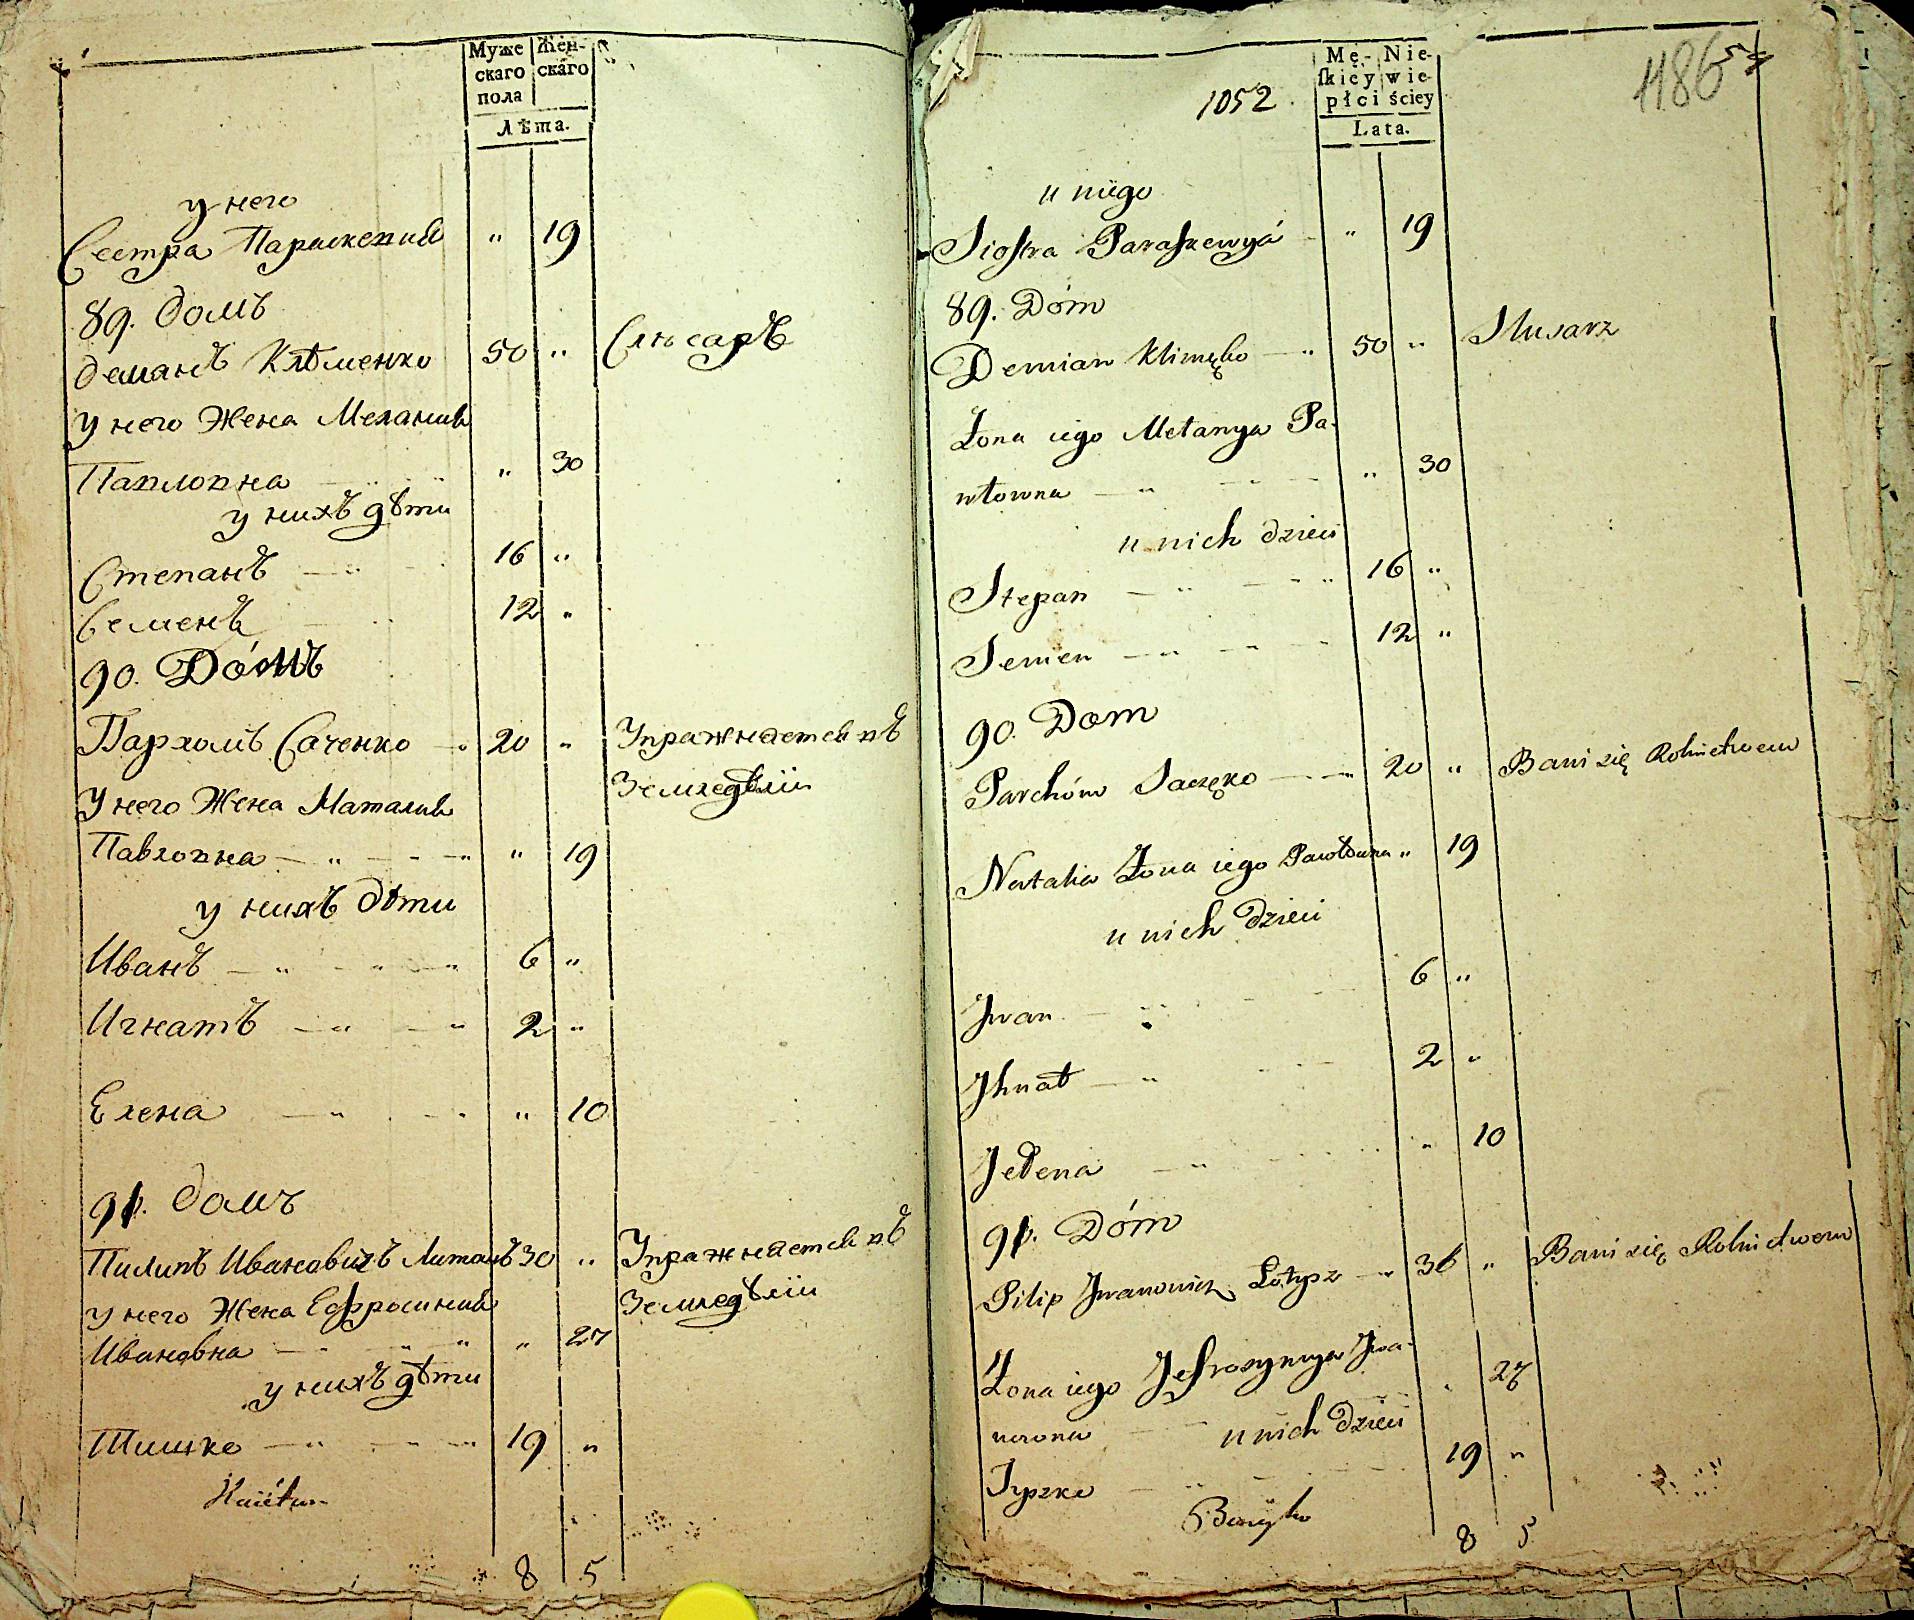 Муже Жен-
скаго скаго
пола
Лѣта.
у него
Сестра Параскевия " 19
89. домъ
демянъ Клѣменко 50 " Слюсаръ
у него Жена Мелания
Павловна " 30
у нихъ дѣти
Степанъ 16 "
Семенъ 12 "
90. Домъ
Пархомъ Саченко 20 " Упражняется въ
Земледѣлiи
У него Жена Наталия
Павловна " 19
у нихъ дѣти
Иванъ 6 "
Игнатъ 2 "
Елена " 10
91. домъ
Пилипъ Ивановичъ Литышъ 30 " Упражняется въ
Земледѣлiи
у него Жена Ефросиния
Ивановна " 27
у нихъ дѣти
Тишко 19 "
8 5
1052
Mę- Nie-
ſkiéy wie-
płci ściey
Lata.
1186
u niego
Siostra Paraszewya " 19
89. Dóm
Demian Klimęko 50 " Slusarz
Żona iego Mełanya Pa-
włowna " 30
u nich dzieci
Stepan 16 "
Semen 12 "
90. Dom
Parchóm Saczęko 20 " Bawi się Rolnictwem
Natalia Żona iego Pawłowna " 19
u nich dzieci
Jwan 6 "
Jhnat 2 "
Jełena " 10
91. Dóm
Pilip Jwanowicz Łotysz 30 " Bawi się Rolnictwem
Żona iego Jefrosynya Jwa-
nowna " 27
u nich dzieci
Tyszko 19 "
8 5